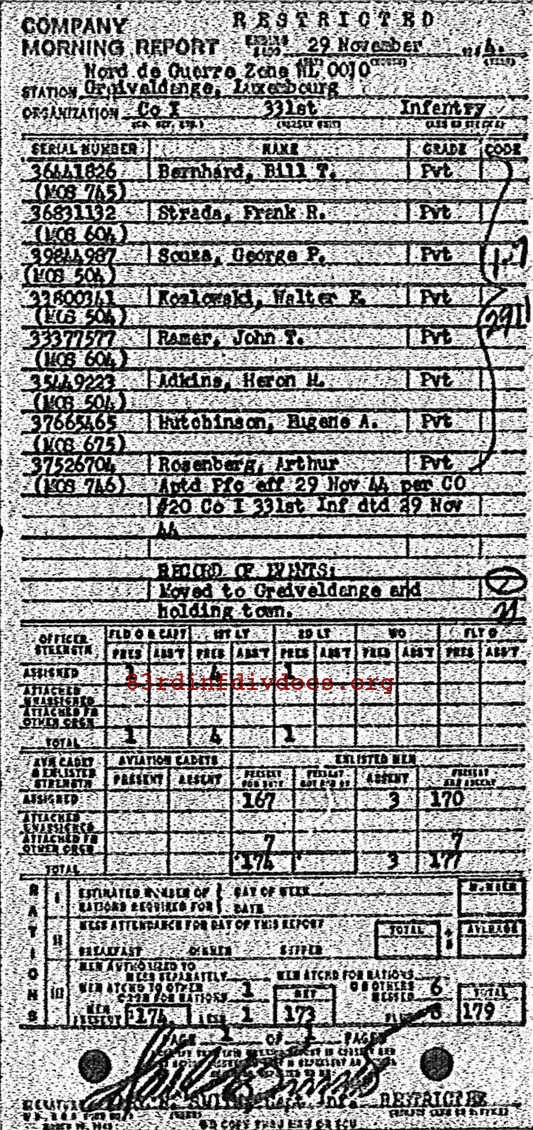 RESTRICTED
COMPANY
MORNING REPORT
29 November
Nord de Guerre Zone WL 0010
STATION Greiveldange, Luxembourg
ORGANIZATION Co I 331st Infantry
SERIAL NUMBER NAME GRADE CODE
36441826 Bernhard, Bill T. Pvt
(MOS 745)
36831132 Strada, Frank R. Pvt
(MOS 604)
39844987 Souza, George P. Pvt
(MOS 504)
33800341 Kozlowski, Walter E. Pvt
(MOS 504)
33377577 Ramer, John T. Pvt
(MOS 604)
35449223 Adkins, Heron M. Pvt
(MOS 504)
37665465 Hutchinson, Eugene A. Pvt
(MOS 675)
37526704 Rosenberg, Arthur Pvt
(MOS 746) Aptd Pfc eff 29 Nov 44 per CO
#20 Co I 331st Inf dtd 29 Nov
44
RECORD OF EVENTS:
Moved to Greiveldange and
holding town.
OFFICER STRENGTH FLD O & CAPT 1ST LT 2D LT WO FLT O
PRES ABS'T PRES ABS'T PRES ABS'T PRES ABS'T PRES ABS'T
ASSIGNED 1 4 1
83rdinfdivdocs.org
ATTACHED UNASSIGNED
ATTACHED FR OTHER ORGN
TOTAL 1 4 1
AVN CADET & ENLISTED STRENGTH AVIATION CADETS ENLISTED MEN
PRESENT ABSENT PRESENT FOR DUTY PRESENT NOT FOR DY ABSENT PRESENT AND ABSENT
ASSIGNED 167 3 170
ATTACHED UNASSIGNED
ATTACHED FR OTHER ORGN 7 7
TOTAL 174 3 177
RATIONS
I ESTIMATED NUMBER OF RATIONS REQUIRED FOR DAY OF WEEK NUMBER
DATE
II MESS ATTENDANCE FOR DAY OF THIS REPORT TOTAL ÷ 3 AVERAGE
BREAKFAST DINNER SUPPER
III MEN AUTHORIZED TO MESS SEPARATELY MEN ATCHD FOR RATIONS
MEN ATCHD TO OTHER ORGN FOR RATIONS 1 NET OR OTHERS MESSED 6 TOTAL
MEN PRESENT 174 LESS 1 173 PLUS 6 179
PAGE 1 OF 1 PAGES
Capt, Inf. RESTRICTED